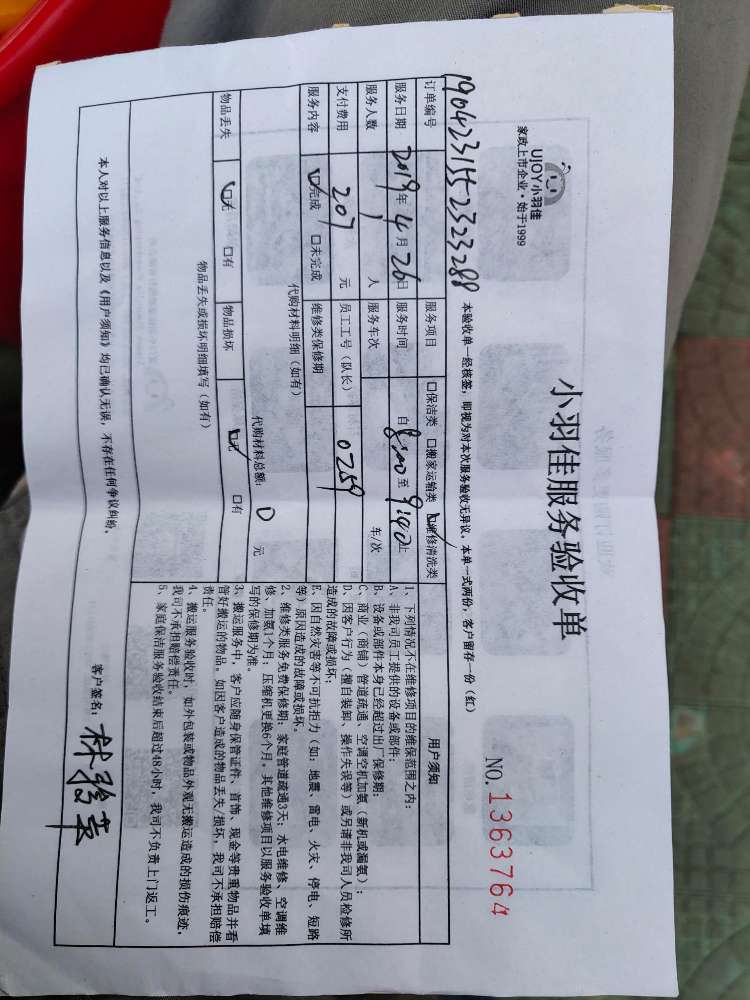 UIOY小羽佳
家政上市企业·始于1999
小羽佳服务验收单
NO. 1363764
本验收单一经核签，即视为对本次服务验收无异议，本单一式两份，客户留存一份（红）
订单编号 190423155-2323288 服务项目 口保洁类 口搬家运输类 口维修清洗类
服务日期 2019年 4月 26日 服务时间 自 8:00 至 9:40 止
服务人数 1 人 服务车次 车/次
支付费用 207 元 员工工号（队长） 0259
服务内容 口完成 口未完成 维修类保修期
代购材料明细（如有）
代购材料总额： 0 元
物品丢失 口无 口有 物品损坏 口无 口有
物品丢失或损坏明细填写（如有）
用户须知
1、下列情况不在维修项目的维保范围之内：
A、非我司员工提供的设备或部件；
B、设备或部件本身已经超过出厂保修期；
C、商业（商铺）管道疏通、空调空机加氨（新机或漏氨）；
D、因客户行为（擅自装卸、操作失误等）或另请非我司人员检修所
造成的故障或损坏；
E、因自然灾害等不可抗拒力（如：地震、雷电、火灾、停电、短路
等）原因造成的故障或损坏。
2、维修类服务免费保修期：家庭管道疏通3天；水电维修、空调维
修、加氨1个月；压缩机更换6个月，其他维修项目以服务验收单填
写的保修期为准。
3、搬运服务中，客户应随身保管证件、首饰、现金等贵重物品并看
管好搬运的物品。如因客户造成的物品丢失/损坏，我司不承担赔偿
责任。
4、搬运服务验收时，如外包装或物品外观无搬运造成的损伤痕迹，
我司不承担赔偿责任。
5、家庭保洁服务验收结束后超过48小时，我司不负责上门返工。
本人对以上服务信息以及《用户须知》均已确认无误，不存在任何争议纠纷。
客户签名：林